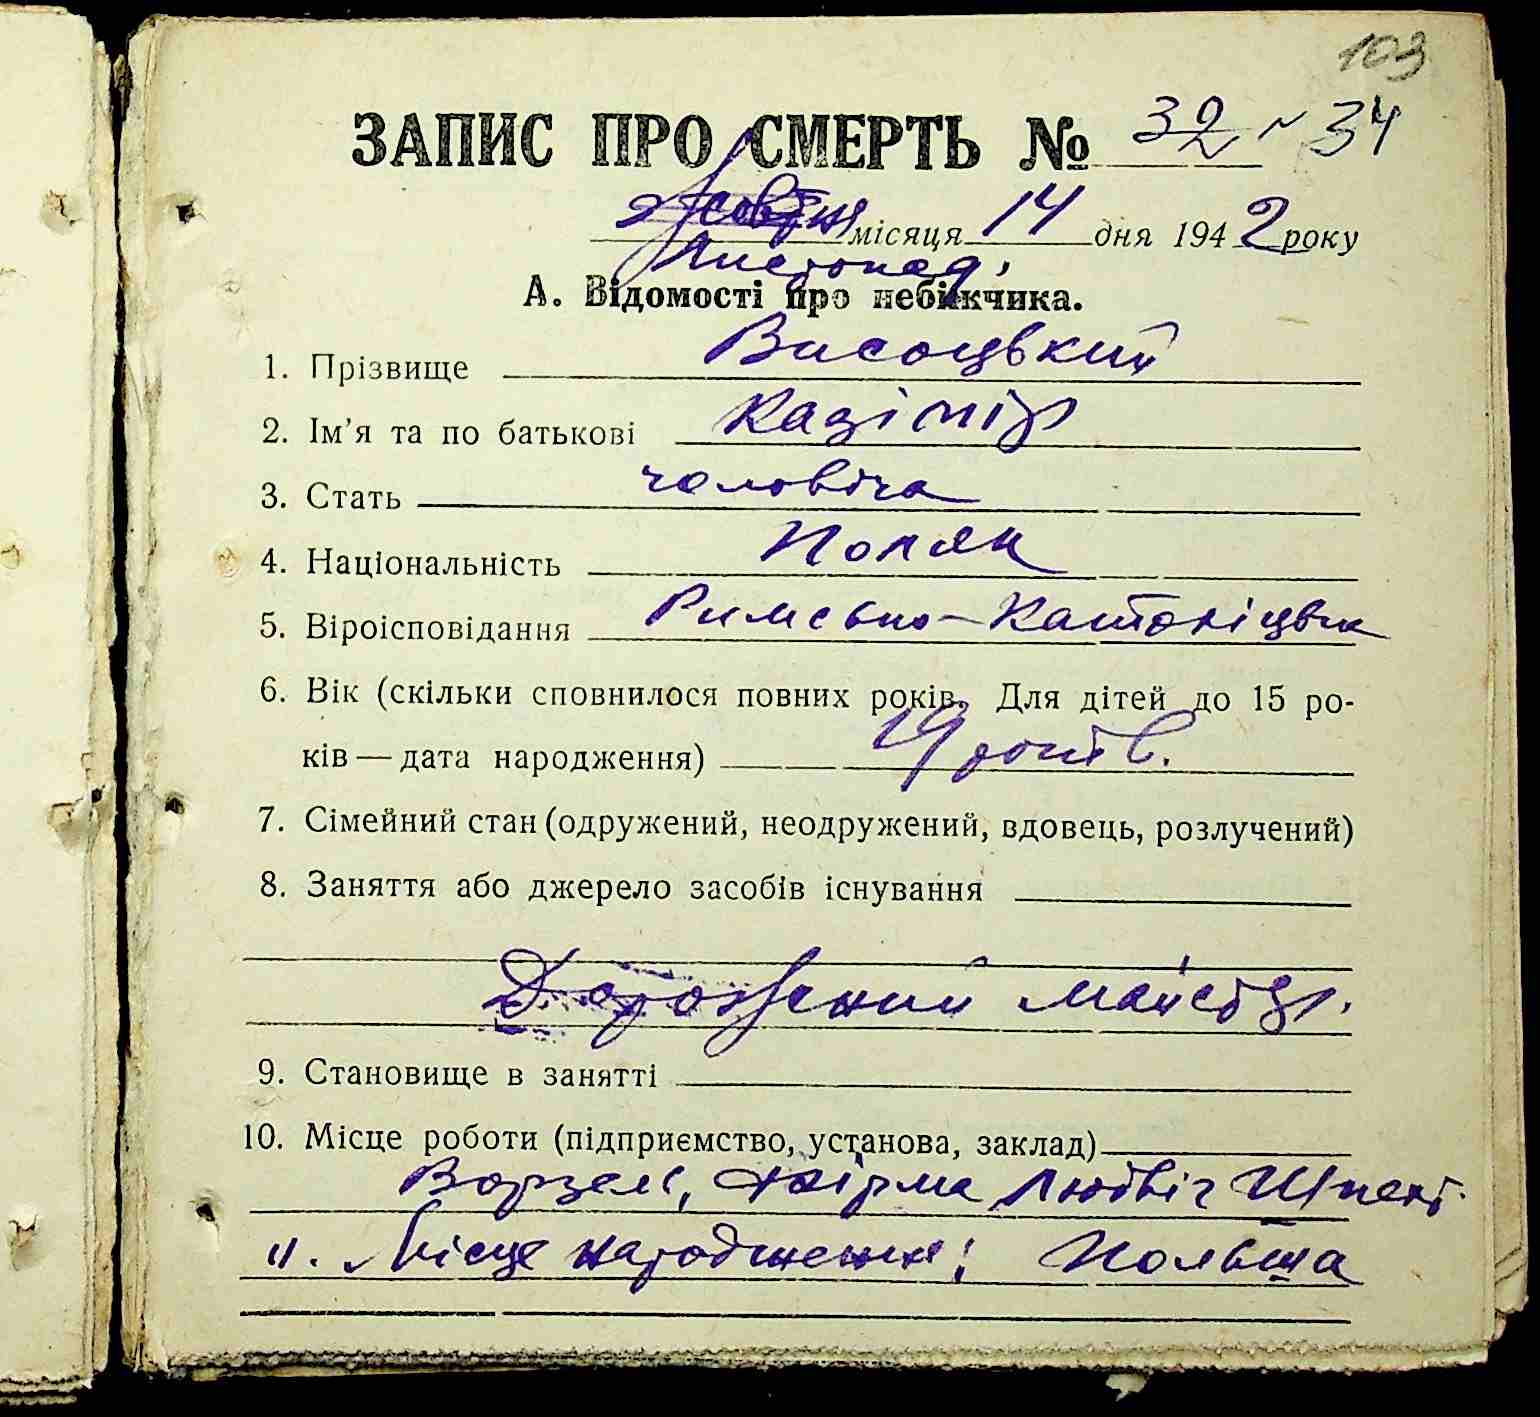 103
ЗАПИС ПРО СМЕРТЬ № 32 ~ 34
Жовтня місяця 14 дня 1942 року
Листопад,
А. Відомості про небіжчика.
1. Прізвище Висоцький
2. Ім'я та по батькові Казімір
3. Стать чоловіча
4. Національність Поляк
5. Віроісповідання Римсько-Католіцьк
6. Вік (скільки сповнилося повних років. Для дітей до 15 ро-
ків — дата народження) 19 років.
7. Сімейний стан (одружений, неодружений, вдовець, розлучений)
8. Заняття або джерело засобів існування
Дорожений майстр.
9. Становище в занятті
10. Місце роботи (підприємство, установа, заклад)
Ворзель, Фірма Людвіг
11. Місце народження: Польша